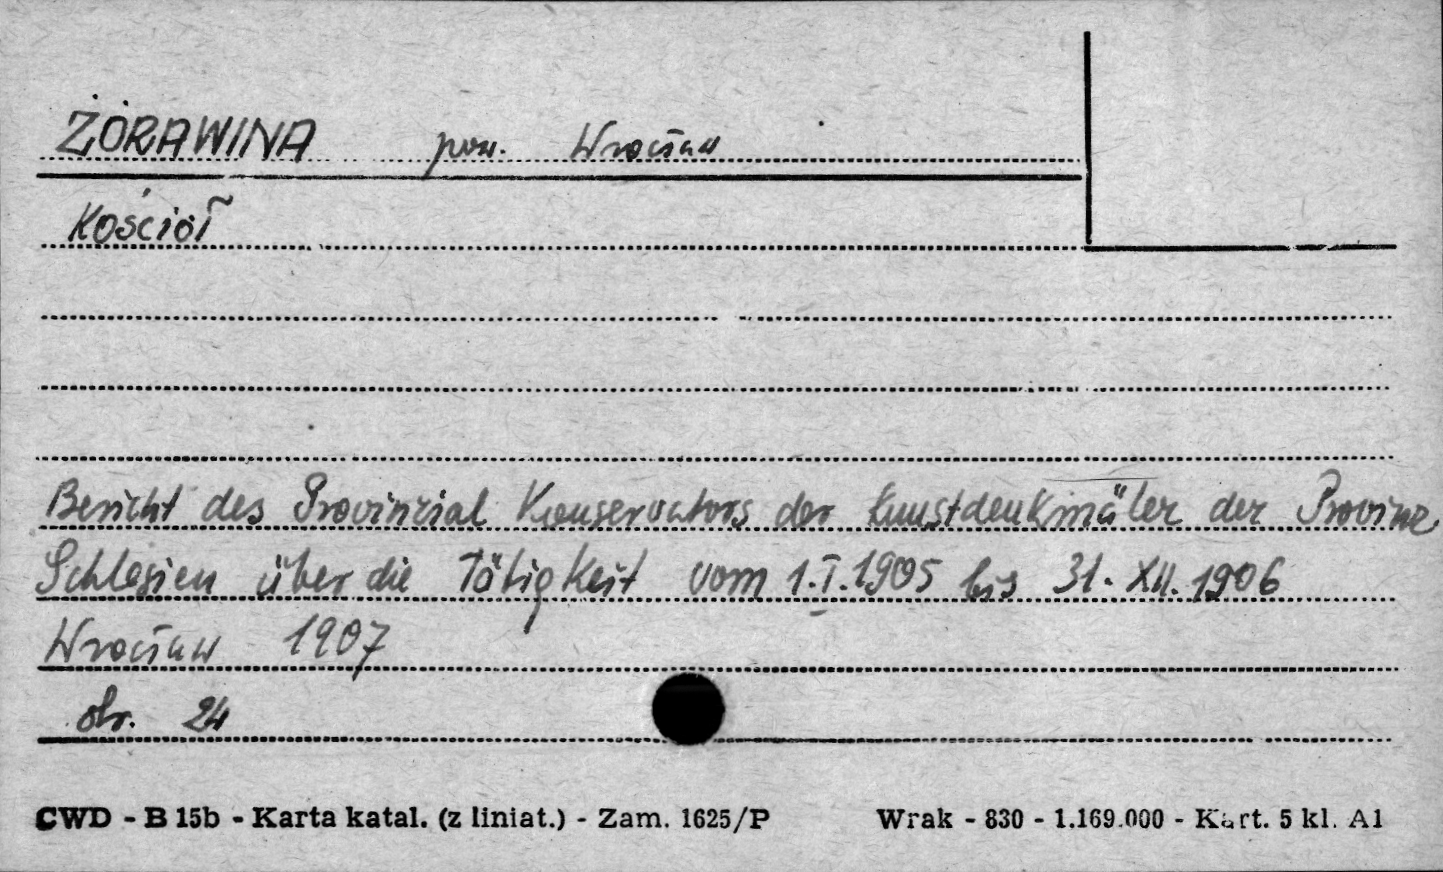 ŻÓRAWINA pow. Wrocław
Kościół
Bericht des Provinzial Konservators der Kunstdenkmäler der Provinz
Schlesien über die Tätigkeit vom 1.I.1905 bis 31.XII.1906
Wrocław 1907
str. 24
CWD - B 15b - Karta katal. (z liniat.) - Zam. 1625/P Wrak - 830 - 1.169.000 - Kart. 5 kl. A1